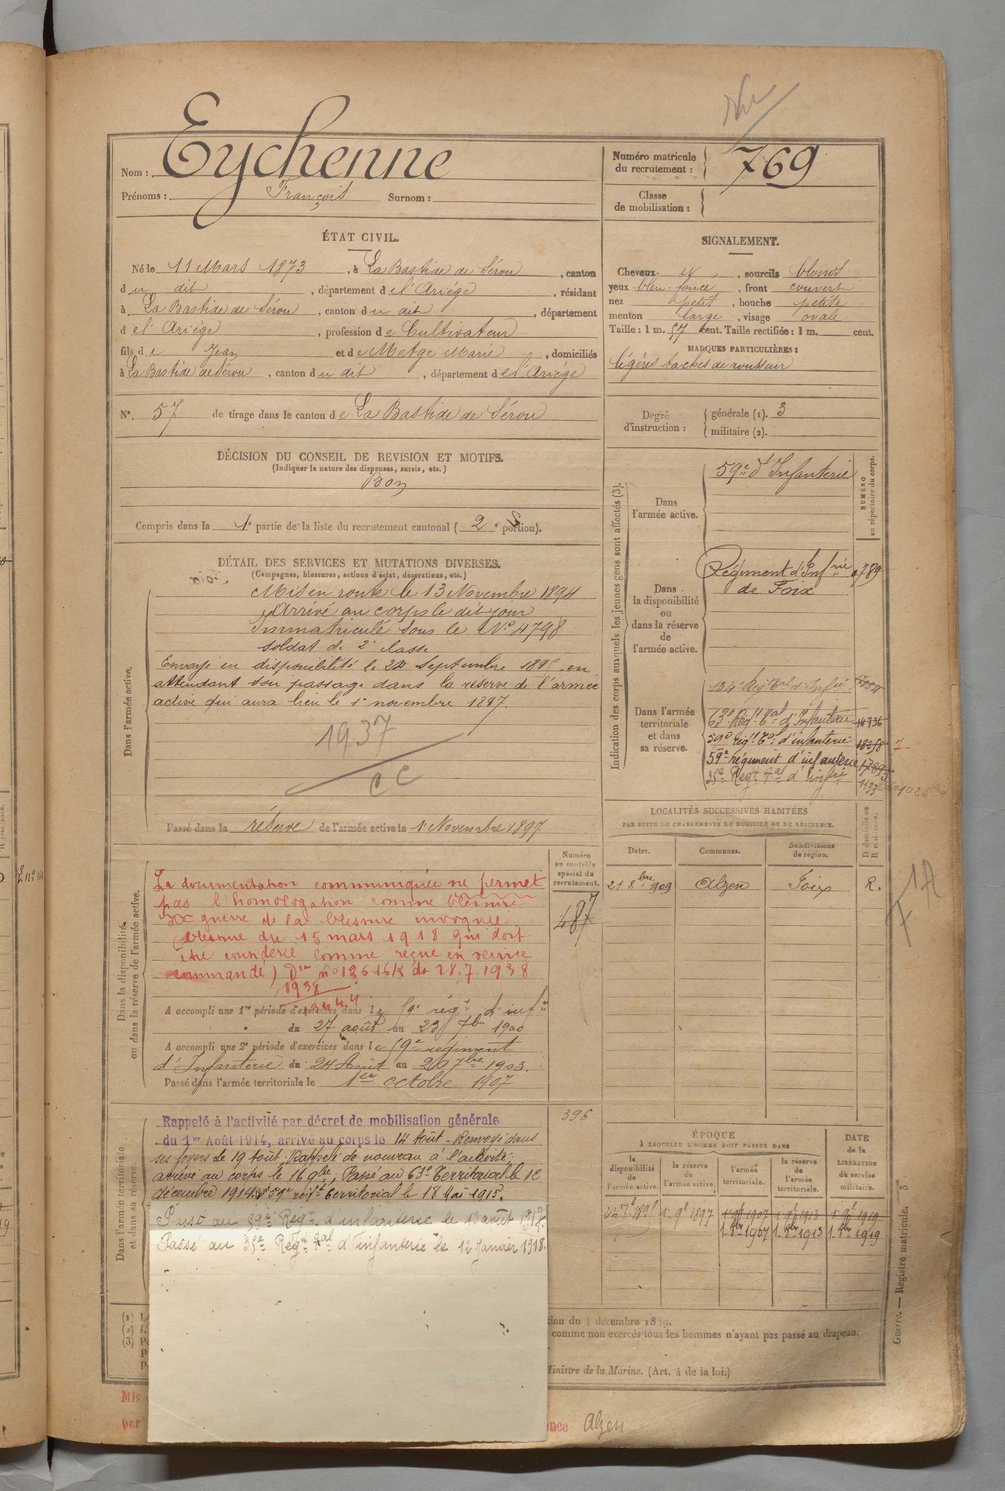 Nom : Eychenne
Prénoms : François Surnom :
Numéro matricule
du recrutement : 769
Classe
de mobilisation :
ÉTAT CIVIL.
Né le 11 Mars 1873, à La Bastide de Sérou, canton
du dit, département de l'Ariège, résidant
à La Bastide de Sérou, canton du dit, département
de l'Ariège, profession de Cultivateur
fils de Jean et de Metge Marie, domiciliés
à La Bastide de Sérou, canton du dit, département de l'Ariège
N°. 57 de tirage dans le canton de La Bastide de Sérou
SIGNALEMENT.
Cheveux et, sourcils blonds
yeux bleu foncé, front couvert
nez petit, bouche petite
menton large, visage ovale
Taille : 1 m. 57 cent. Taille rectifiée : 1 m. cent.
MARQUES PARTICULIÈRES :
légères taches de rousseur
Degré
d'instruction :
générale (1). 3
militaire (2).
DÉCISION DU CONSEIL DE REVISION ET MOTIFS.
(Indiquer la nature des dispenses, sursis, etc.)
Bon
Compris dans la 1e partie de la liste du recrutement cantonal ( 2e portion).
DÉTAIL DES SERVICES ET MUTATIONS DIVERSES.
(Campagnes, blessures, actions d'éclat, décorations, etc.)
Dans l'armée active.
Mis en route le 13 Novembre 1894
Arrivé au corps le dit jour
Immatriculé sous le N° 4798
soldat de 2e classe
Envoyé en disponibilité le 24 Septembre en
attendant son passage dans la réserve de l'armée
active qui aura lieu le 1er novembre 1897.
1937
Passé dans la réserve de l'armée active le 1 Novembre 1897
Indication des corps auxquels les jeunes gens sont affectés (3).
NUMÉRO
au répertoire du corps.
Dans
l'armée active.
59e d'Infanterie
Dans
la disponibilité
ou
dans la réserve
de
l'armée active.
Régiment d'Infrie
de Foix
Dans l'armée
territoriale
et dans
sa réserve.
63e Régt Tal d'Infanterie
59e régt Tal d'infanterie
59e régiment d'infanterie
35e Régt Tal d'Infie
LOCALITÉS SUCCESSIVES HABITÉES
PAR SUITE DE CHANGEMENTS DE DOMICILE OU DE RÉSIDENCE.
Dates. Communes. Subdivisions
de région.
21 8bre 1909 Alzen Foix R.
Dans la disponibilité
ou dans la réserve de l'armée active.
Numéro
au contrôle
spécial du
recrutement.
487
La documentation communiquée ne permet
pas l'homologation comme blessure
de guerre de la blessure invoquée
(blessure du 15 mars 1918 qui doit
être considérée comme reçue en service
commandé) Don n° 12616K du 28.7.1938
1938
A accompli une 1re période d'exercices dans le 59e régt d'infie
du 27 août au 23 7b 1900
A accompli une 2e période d'exercices dans le 59e régiment
d'Infanterie du 24 Août au 20 7bre 1903.
Passé dans l'armée territoriale le 1er octobre 1907
Dans l'armée territoriale
et dans sa réserve.
396
Rappelé à l'activité par décret de mobilisation générale
du 1er Août 1914, arrivé au corps le 14 Août - Renvoyé dans
ses foyers le 19 Août. Rappelé de nouveau à l'activité.
arrivé au corps le 16 9bre, Passé au 63e Territorial le 12
décembre 1914. 59e régt territorial le 18 Mai 1915.
Passé au 59e Régt d'infanterie le août 1917.
Passé au 35e Régt Tal d'infanterie le 12 Janvier 1918.
ÉPOQUE
À LAQUELLE L'HOMME DOIT PASSER DANS
DATE
de la
LIBÉRATION
du service
militaire.
la
disponibilité
de l'armée active.
la réserve
de
l'armée active.
l'armée
territoriale.
la réserve
de
l'armée
territoriale.
1. 9b 1897 1. 9b 1907 1. 9b 1913 1. 9b 1919
1. 8bre 1907 1. 8bre 1913 1. 8bre 1919
(1)
(2)
(3)
décembre 1889.
comme non exercés tous les hommes n'ayant pas passé au drapeau.
Ministre de la Marine. (Art. 4 de la loi.)
Guerre. — Registre matricule. 3
Mis
par
Alzen